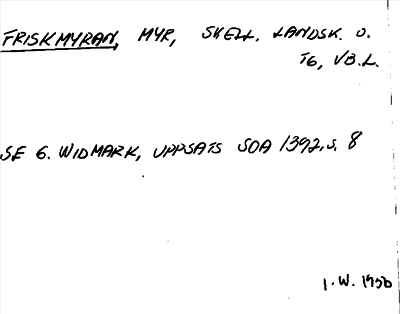 FRISKMYRAN, MYR, SKELL. LANDSK. O.
TG, VB.L.
SE G. WIDMARK, UPPSATS SOA 1392, S. 8
I.W. 1950